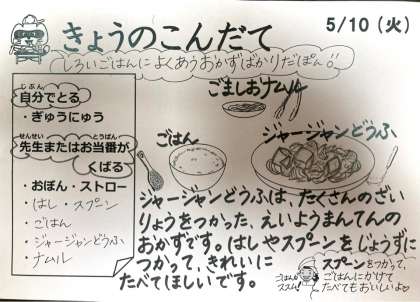 きょうのこんだて
5/10（火）
しろいごはんによくあうおかずばかりだぽん!!
じぶん
自分でとる
・ぎゅうにゅう
せんせい とうばん
先生またはお当番が
くばる
・おぼん・ストロー
・はし・スプーン
・ごはん
・ジャージャンどうふ
・ナムル
ごましおナムル
ごはん
ジャージャンどうふ
ジャージャンどうふは、たくさんのざい
りょうをつかった、えいようまんてんの
おかずです。はしやスプーンをじょうずに
つかって、きれいに
たべてほしいです。
ごはんが
ススム!
スプーンをつかって、
ごはんにかけて
たべてもおいしいよ♡